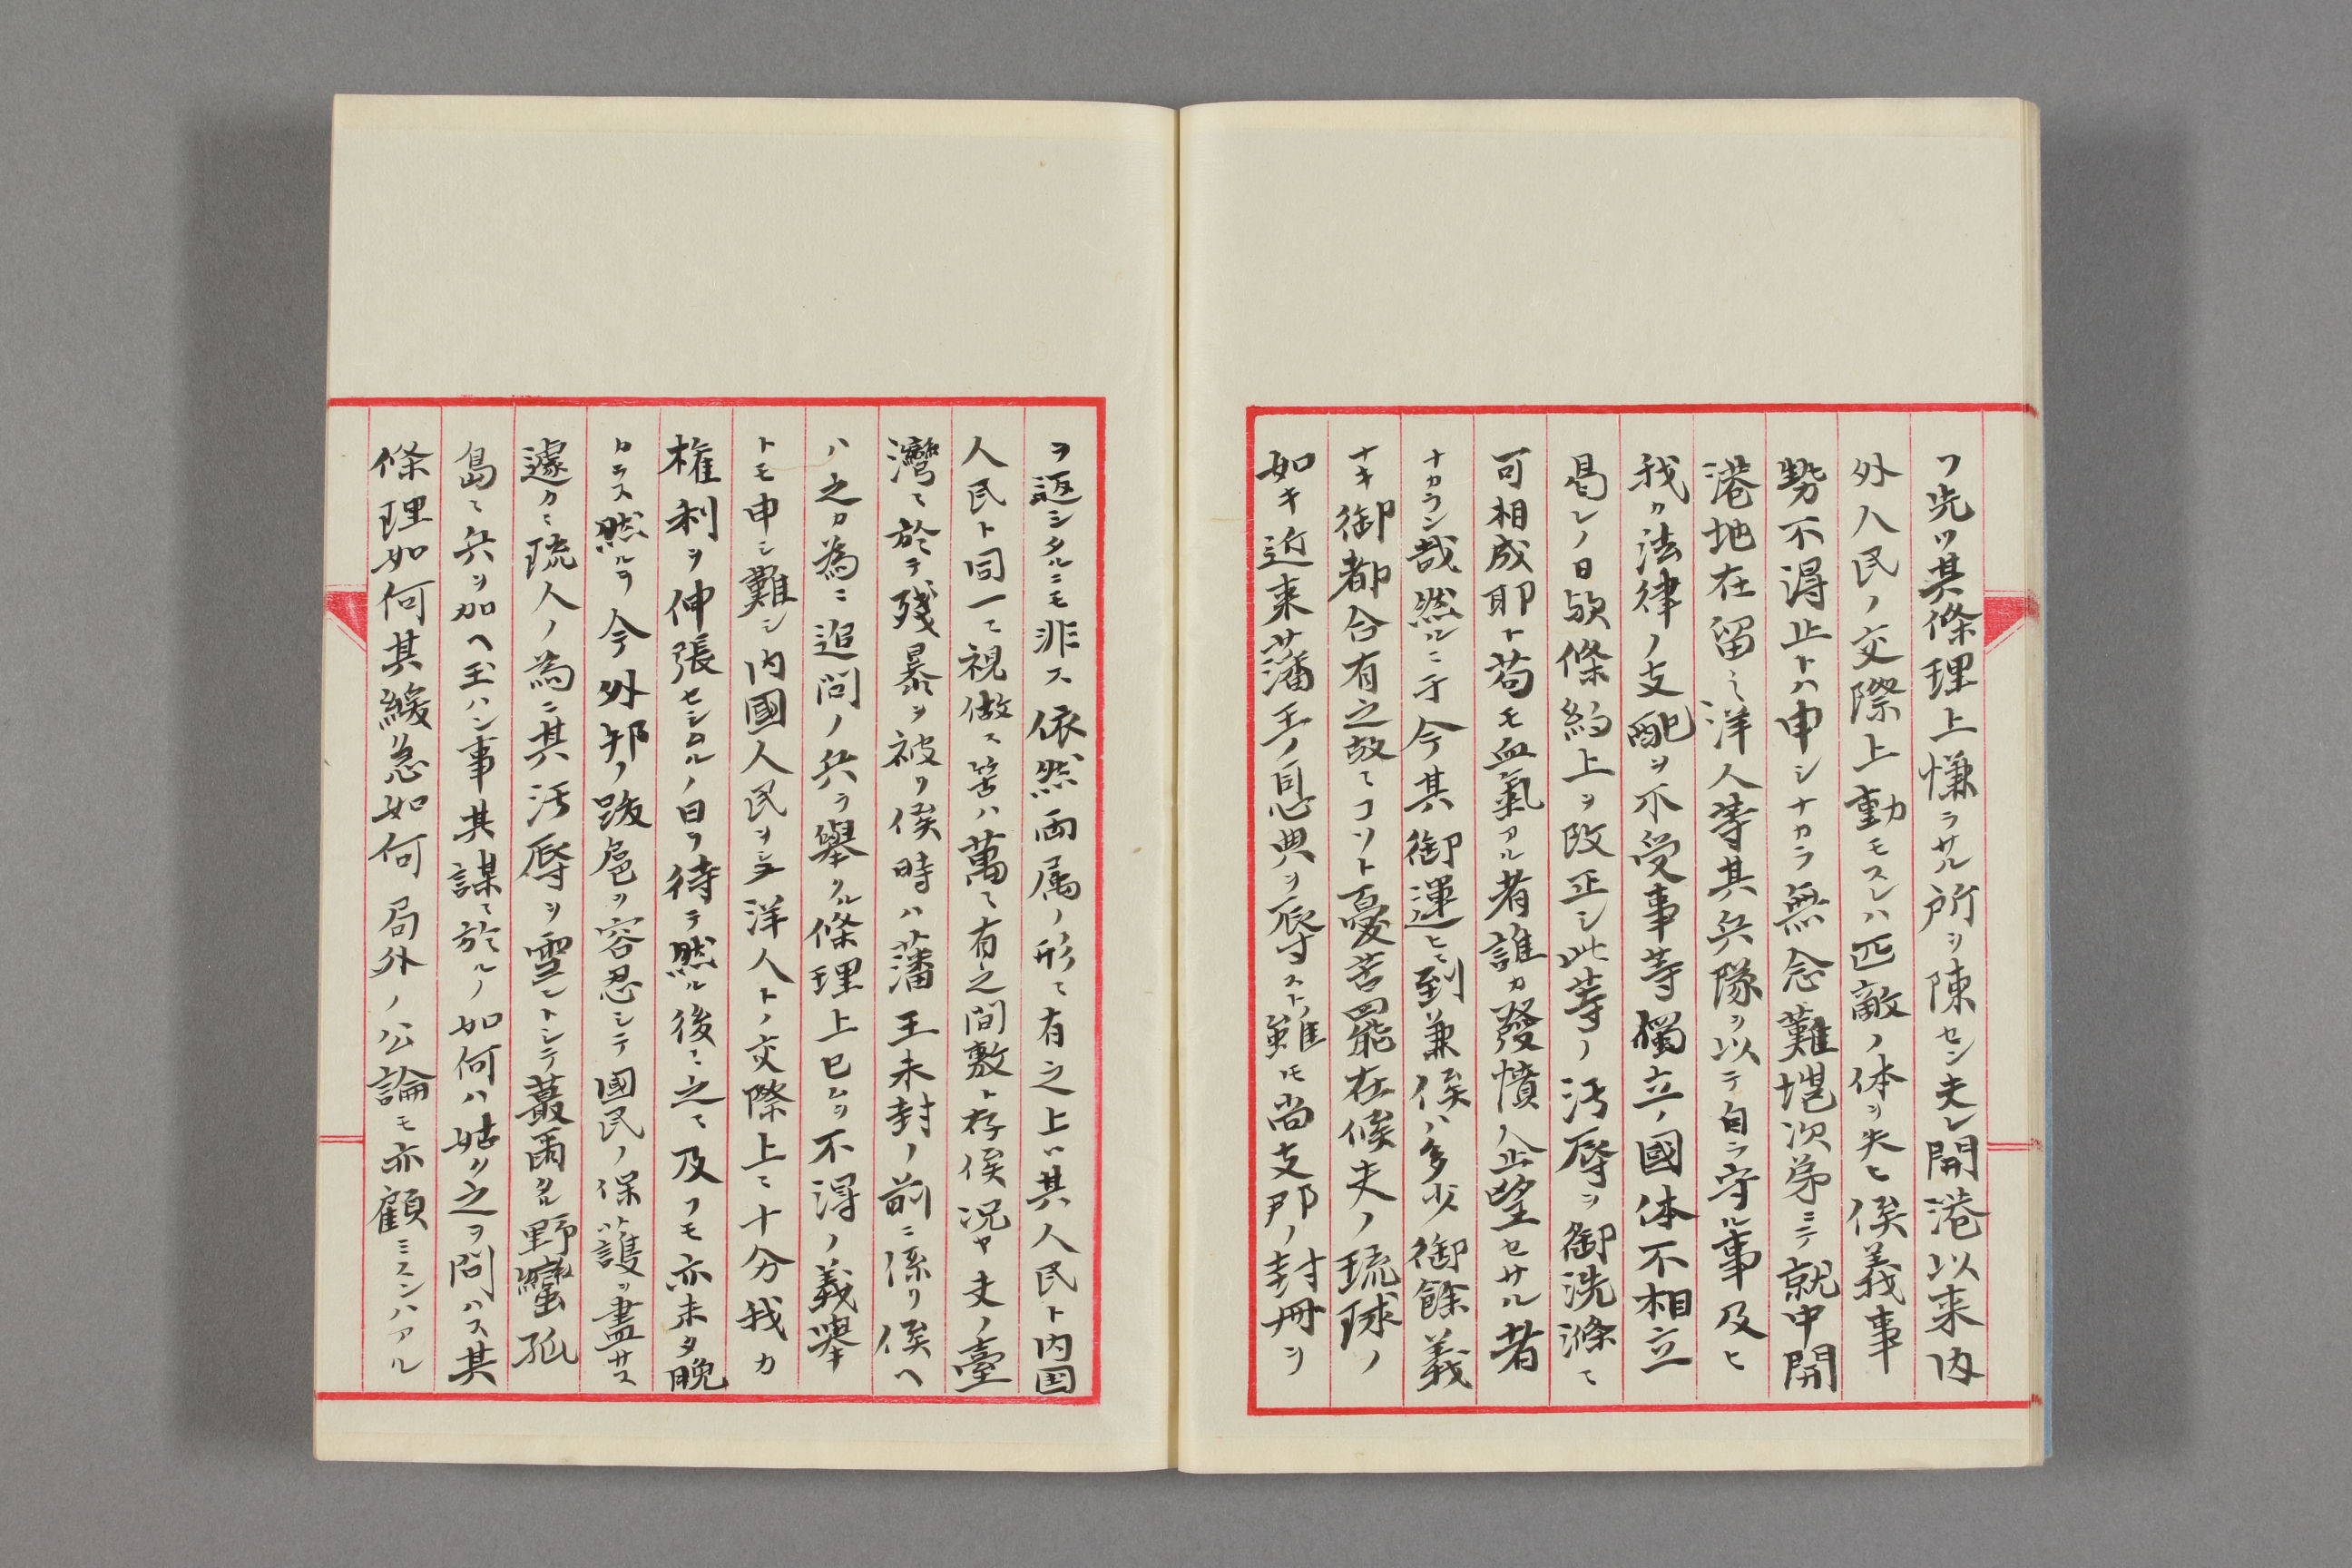 フ先ツ其條理上慊ラサル所ヲ陳セン夫レ開港以来内
外人民ノ交際上動モスレハ匹敵ノ体ヲ失ヒ候義事
勢不得止トハ申シナカラ無念難堪次第ニテ就中開
港地在留之洋人等其兵隊ヲ以テ自ラ守ル事及ヒ
我カ法律ノ支配ヲ不受事等獨立ノ國体不相立
曷レノ日歟條約上ヲ改正シ此等ノ汚辱ヲ御洗滌ニ
可相成耶ト苟モ血氣アル者誰カ發憤ノ企望セサル者
ナカラン哉然ルニ于今其御運ヒニ到兼候ハ多少御餘義
ナキ御都合有之故ニコソト憂苦罷在候夫ノ琉球ノ
如キ近来藩王ノ恩典ヲ辱ストハ雖モ尚支那ノ封冊ヲ
ヲ返シタルニモ非ス依然両属ノ形ニ有之上ハ其人民ト内国
人民ト同一ニ視做ス筈ハ萬ニ有之間敷ト存候況ヤ夫ノ臺
灣ニ於テ殘暴ヲ被リ候時ハ藩王未封ノ前ニ係リ候ヘ
ハ之カ為ニ追問ノ兵ヲ舉クル條理上已ムヲ不得ノ義舉
トモ申シ難シ内國人民ヲシテ洋人トノ交際上ニ十分我カ
権利ヲ伸張セシムルノ日ヲ待テ然ル後ニ之ニ及フモ亦未タ晩
カラス然ルヲ今外邦ノ跋扈ヲ容忍シテ國民ノ保護ヲ盡サス
遽カニ琉人ノ為ニ其汚辱ヲ雪ントシテ蕞爾タル野蠻孤
島ニ兵ヲ加ヘ玉ハン事其謀ニ於ルノ如何ハ姑ク之ヲ問ハス其
條理如何其緩急如何局外ノ公論モ亦顧ミスンハアル